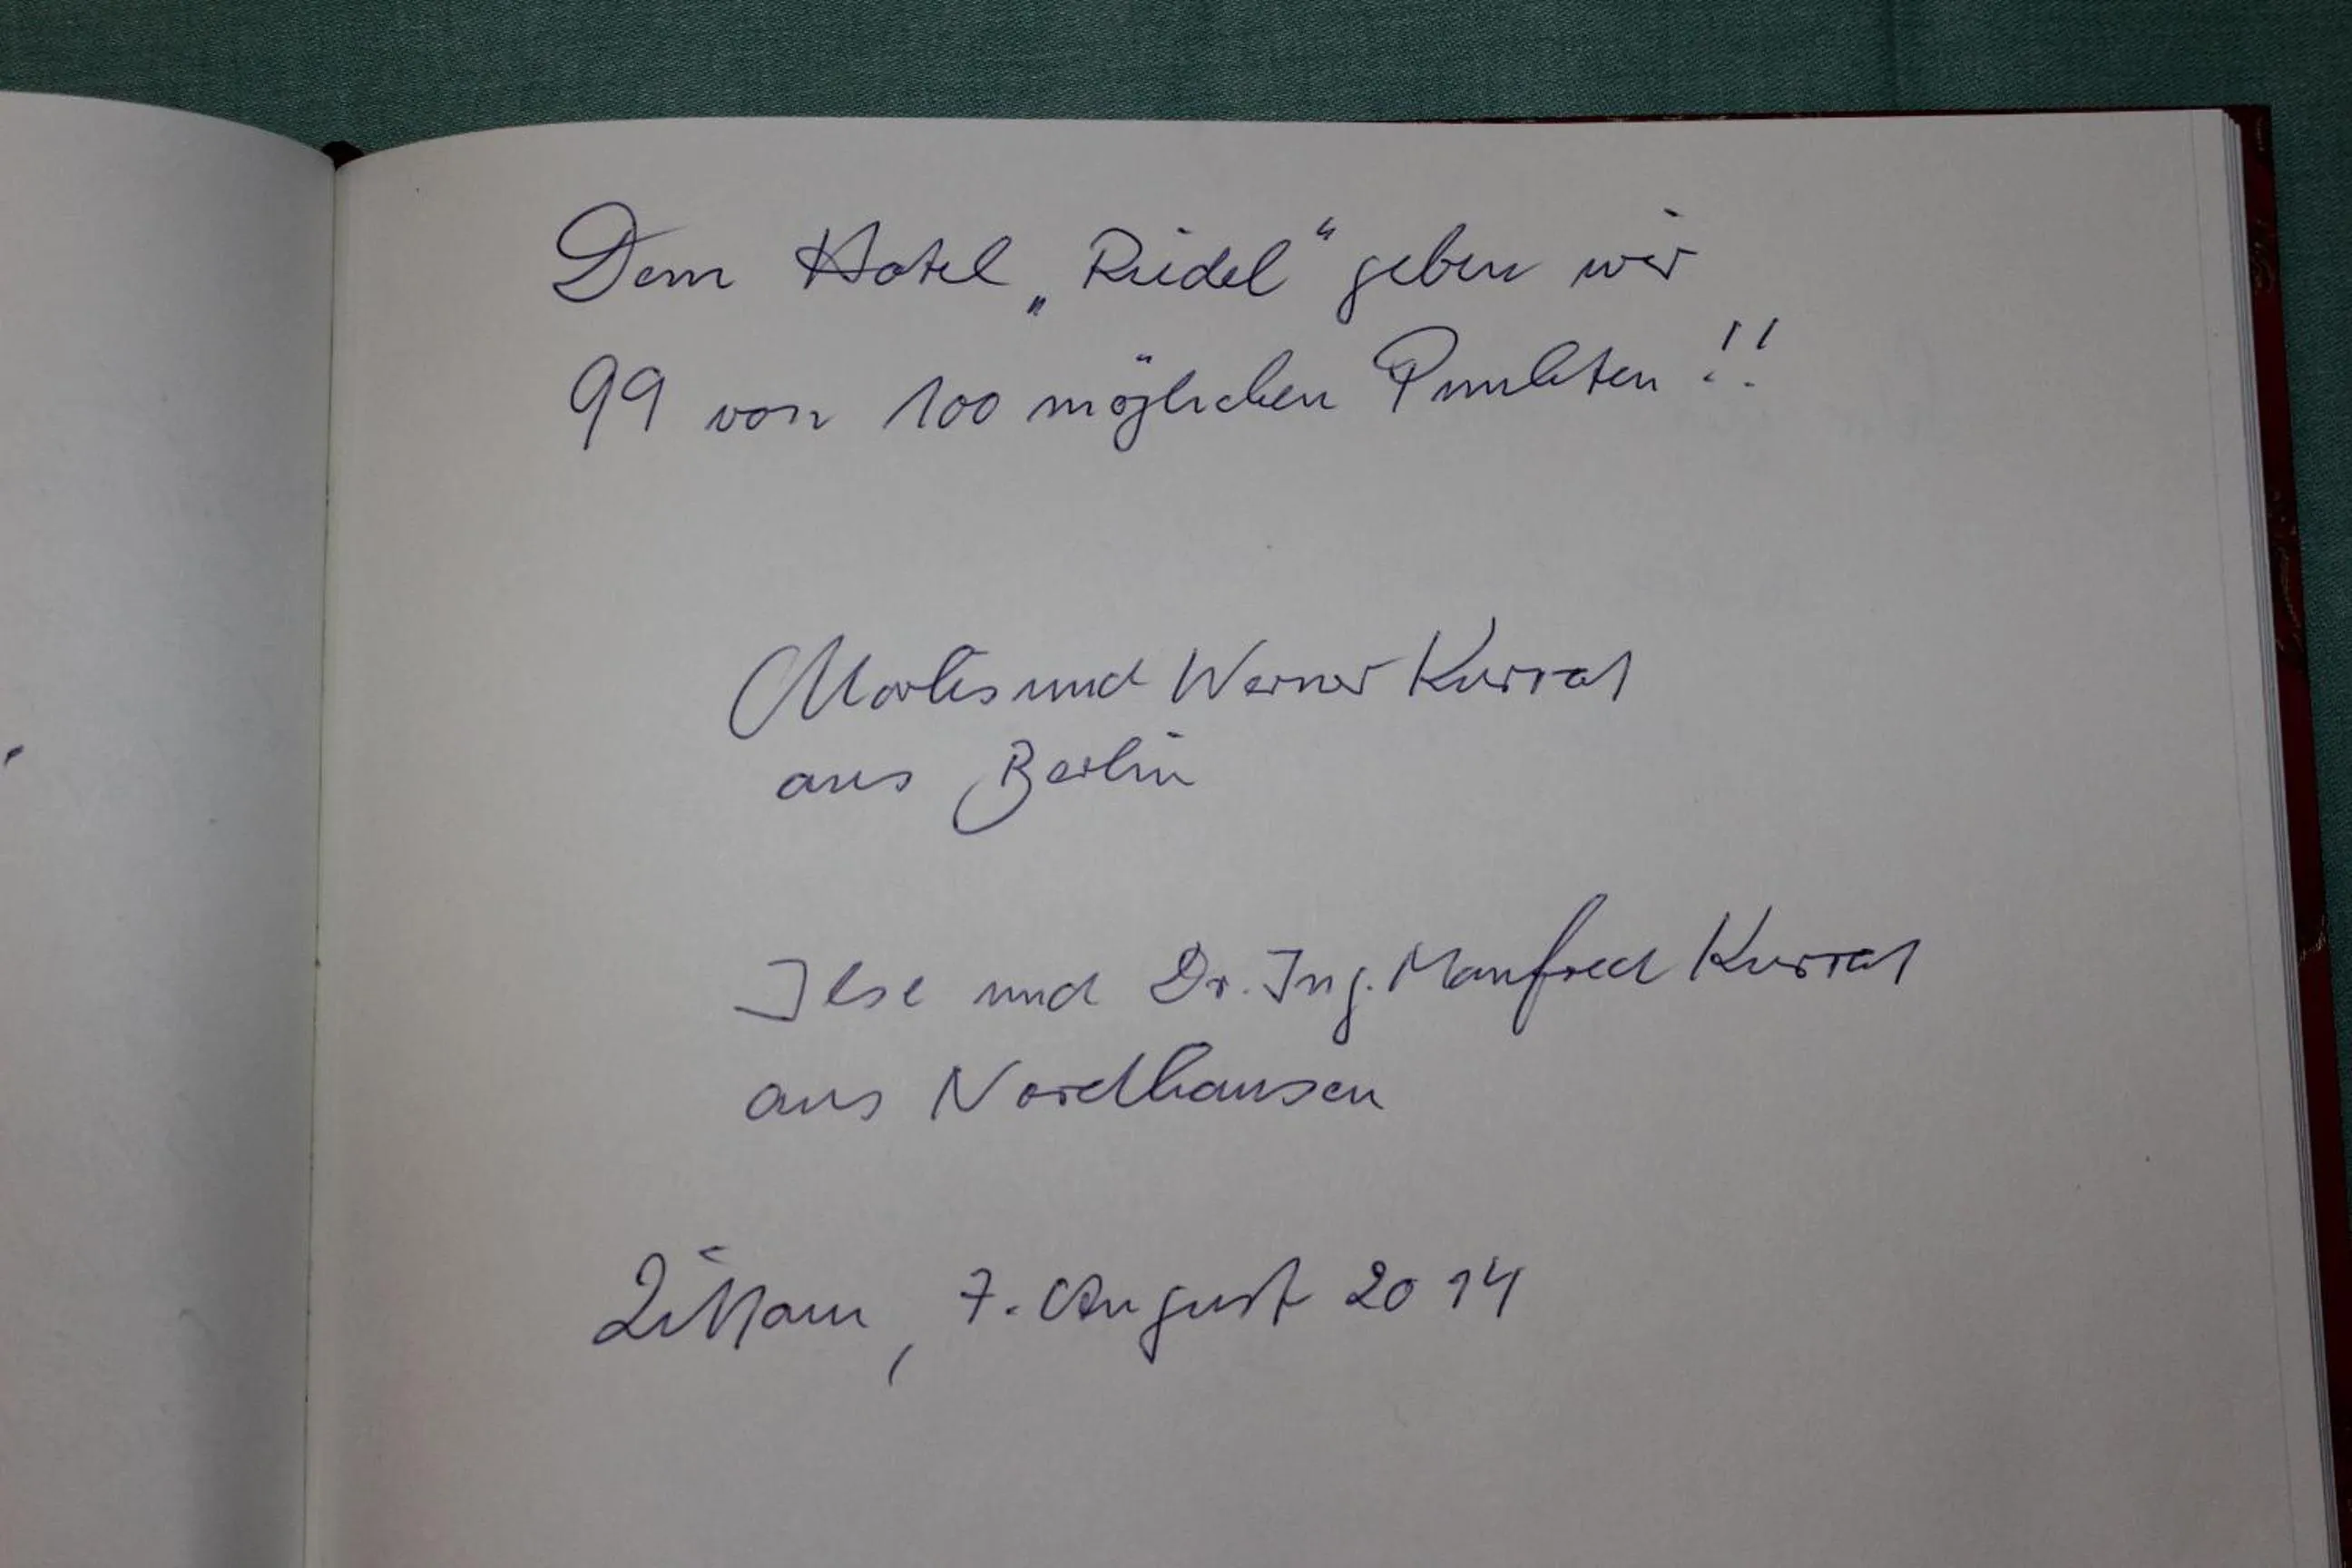 Dem Hotel „Riedel“ geben wir
99 von 100 möglichen Punkten!!
Marlis und Werner Kurrat
aus Berlin
Ilse und Dr. Ing. Manfred Kurrat
aus Nordhausen
Zittau, 7. August 2014